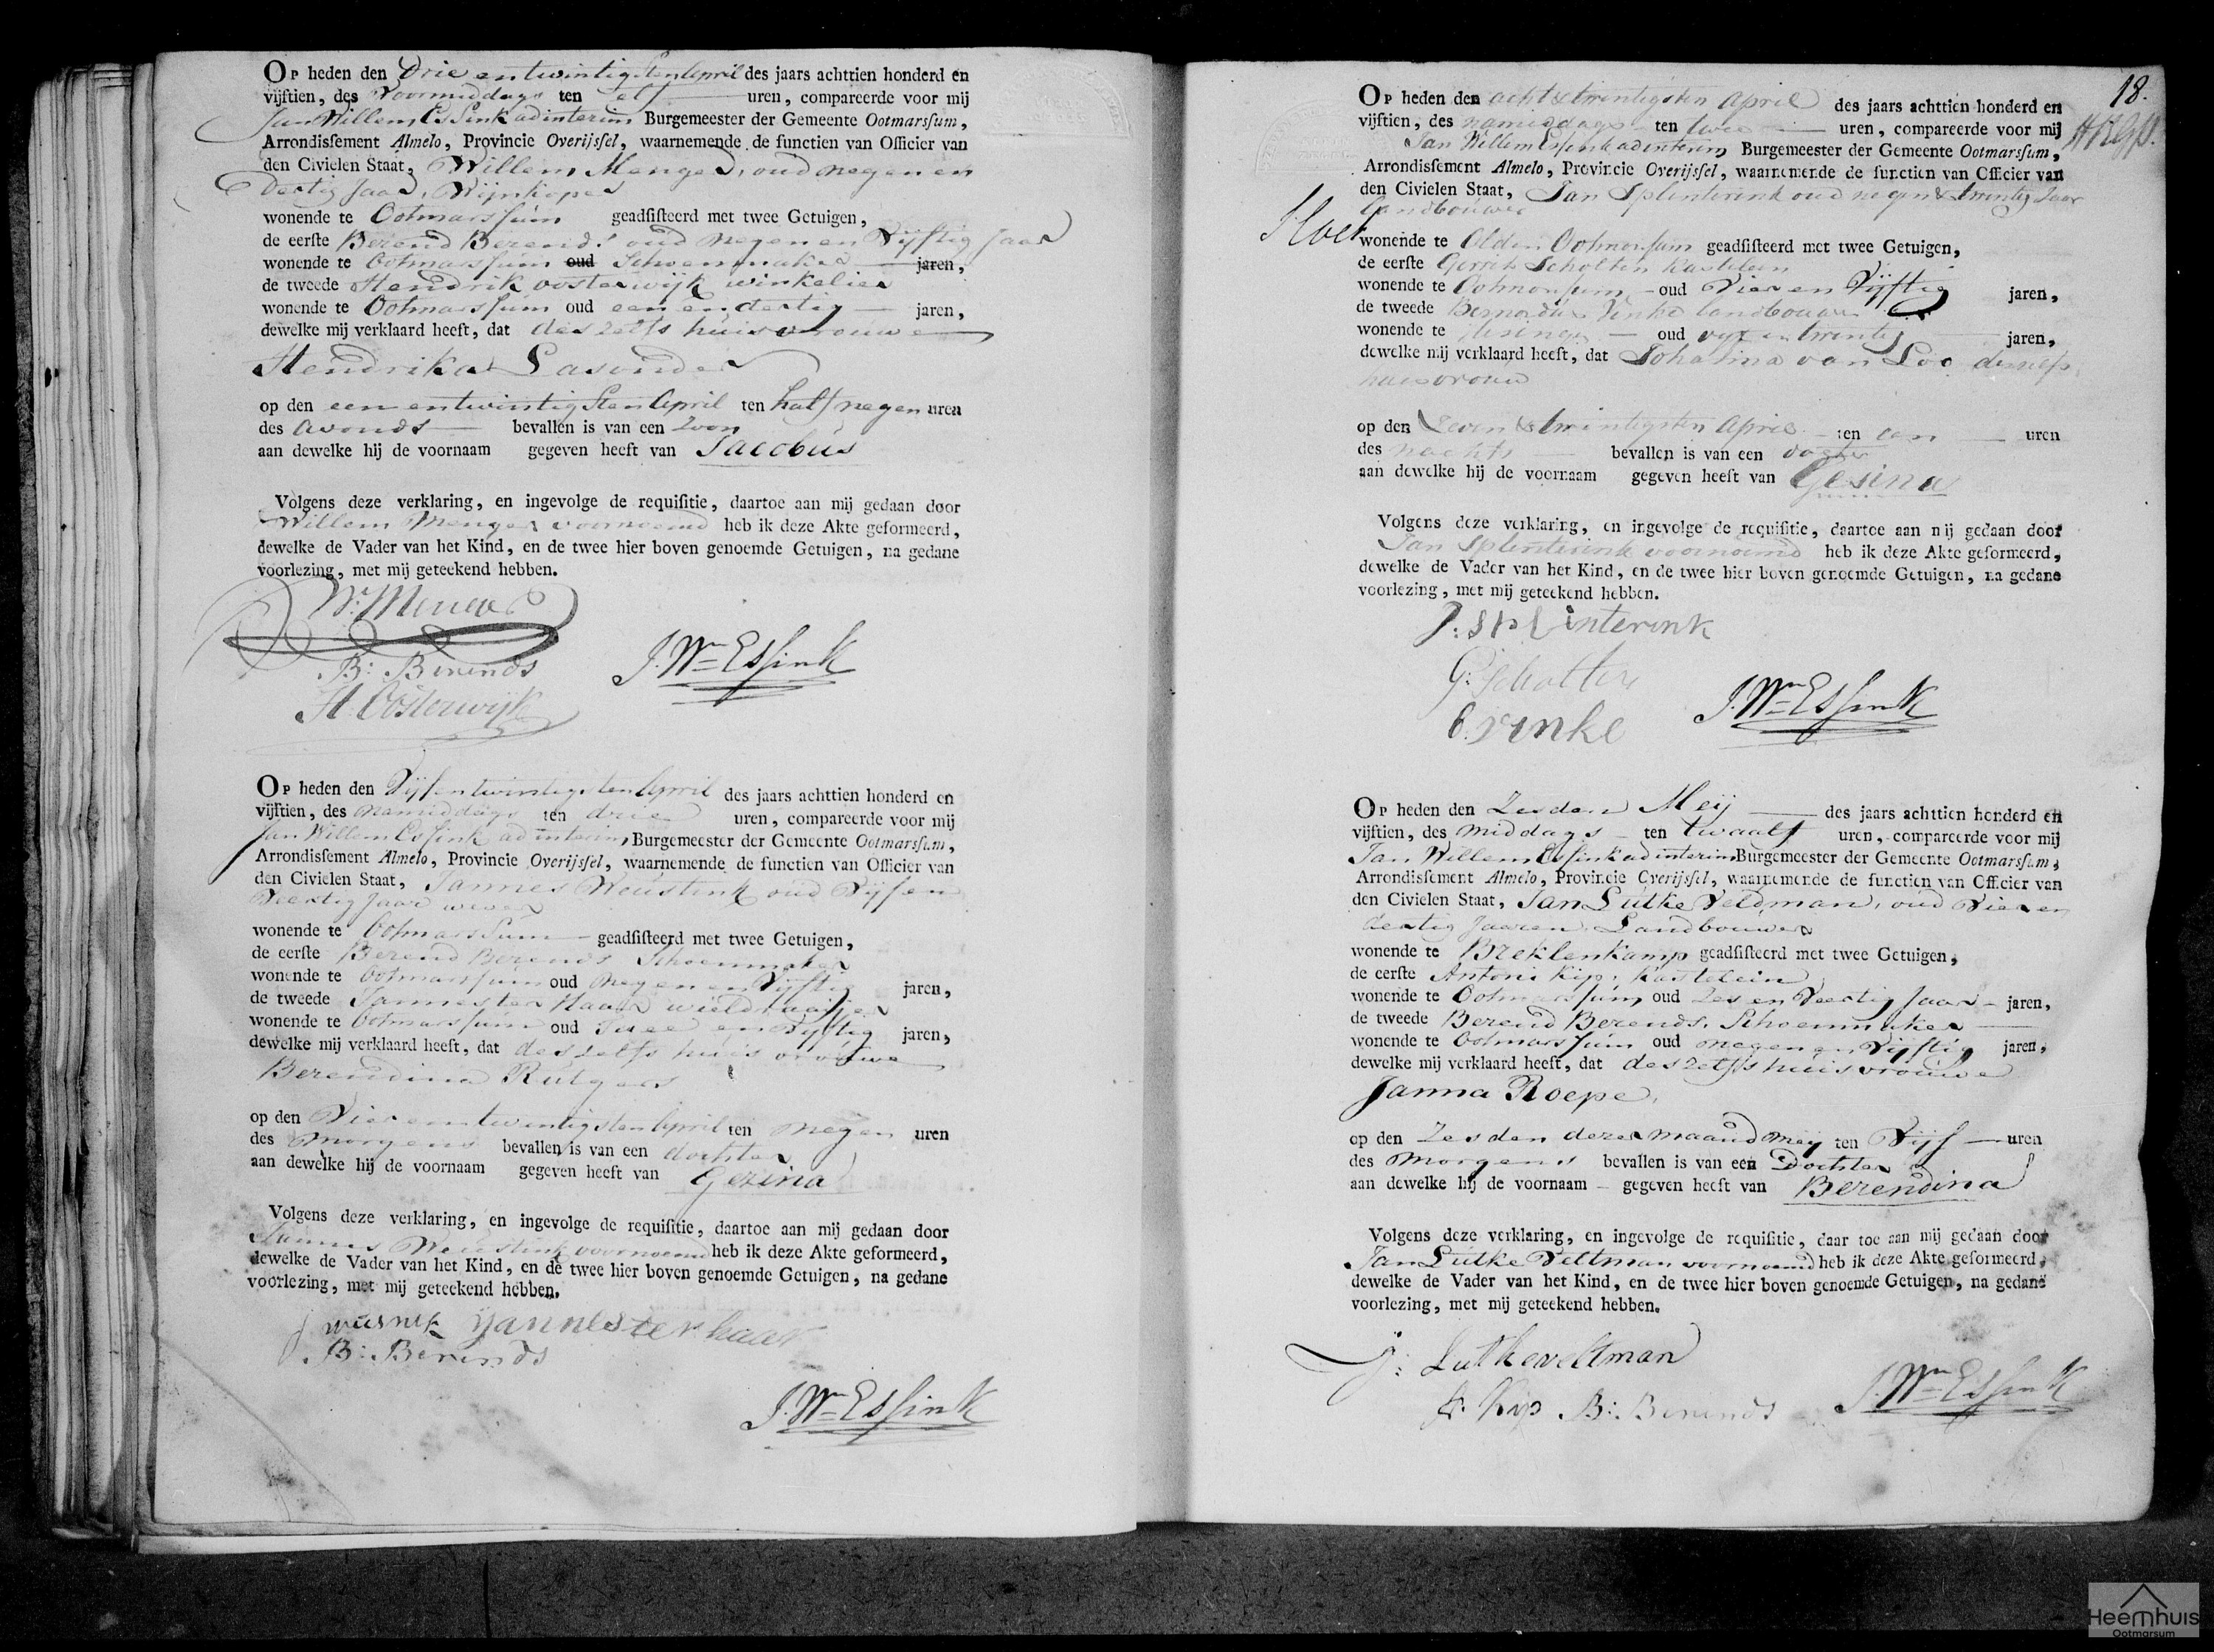 Op heden den Drie en twintigsten April des jaars achttien honderd en
vijftien, des Voormiddags ten elf uren, compareerde voor mij
Jan Willem Essink ad interim Burgemeester der Gemeente Ootmarssum,
Arrondissement Almelo, Provincie Overijssel, waarnemende de functien van Officier van
den Civielen Staat, Willem Menger, oud negen en
dertig Jaar, Wijnkoper
wonende te Ootmarssum geadsisteerd met twee Getuigen,
de eerste Berend Berends oud negen en Vijftig Jaar
wonende te Ootmarssum oud Schoenmaker jaren,
de tweede Hendrik oosterwijk winkelier
wonende te Ootmarssum oud een en dertig jaren,
dewelke mij verklaard heeft, dat deszelfs huisvrouwe
Hendrika Lasonder
op den een en twintigsten April ten half negen uren
des avonds bevallen is van een Zoon
aan dewelke hij de voornaam gegeven heeft van Jacobus
Volgens deze verklaring, en ingevolge de requisitie, daartoe aan mij gedaan door
Willem Menger voornoemd heb ik deze Akte geformeerd,
dewelke de Vader van het Kind, en de twee hier boven genoemde Getuigen, na gedane
voorlezing, met mij geteekend hebben.
Wm Menger
B: Berends
H. Oosterwijk
J. Wm Essink
Op heden den Vijf en twintigsten April des jaars achttien honderd en
vijftien, des namiddags ten drie uren, compareerde voor mij
Jan Willem Essink ad interim Burgemeester der Gemeente Ootmarssum,
Arrondissement Almelo, Provincie Overijssel, waarnemende de functien van Officier van
den Civielen Staat, Jannes Weustink oud Vijf en
Veertig Jaar wever
wonende te Ootmarssum geadsisteerd met twee Getuigen,
de eerste Berend Berends Schoenmaker
wonende te Ootmarssum oud negen en Vijftig jaren,
de tweede Jannes ter Haar wieldraaijer
wonende te Ootmarssum oud twee en Vijftig jaren,
dewelke mij verklaard heeft, dat deszelfs huisvrouwe
Berendina Rutgers
op den Vier en twintigsten April ten negen uren
des morgens bevallen is van een dochter
aan dewelke hij de voornaam gegeven heeft van Gezina
Volgens deze verklaring, en ingevolge de requisitie, daartoe aan mij gedaan door
Jannes Weustink voornoemd heb ik deze Akte geformeerd,
dewelke de Vader van het Kind, en de twee hier boven genoemde Getuigen, na gedane
voorlezing, met mij geteekend hebben.
J wusnek yannes ter haar
B: Berends
J. Wm Essink
18.
Op heden den acht & twintigsten April des jaars achttien honderd en
vijftien, des namiddags ten twee uren, compareerde voor mij
Jan Willem Essink ad interim Burgemeester der Gemeente Ootmarssum,
Arrondissement Almelo, Provincie Overijssel, waarnemende de functien van Officier van
den Civielen Staat, Jan Splenterink oud negen & twintig Jaar
landbouwer
wonende te Olden Ootmarsum geadsisteerd met twee Getuigen,
de eerste Gerrit Scholten Kastelein
wonende te Ootmarsum oud Vier en Vijftig jaren,
de tweede Bernardus Vinke landbouwer
wonende te oud vijf en twintig jaren,
dewelke mij verklaard heeft, dat Johanna van Loo deszelfs
huisvrouw
op den Zeven & twintigsten April ten een uren
des nachts bevallen is van een dogter
aan dewelke hij de voornaam gegeven heeft van Gesina
Volgens deze verklaring, en ingevolge de requisitie, daartoe aan mij gedaan door
Jan Splenterink voornoemd heb ik deze Akte geformeerd,
dewelke de Vader van het Kind, en de twee hier boven genoemde Getuigen, na gedane
voorlezing, met mij geteekend hebben.
J: Splinterink
G: Scholten
B: vinke
J. Wm Essink
Op heden den Zesden Meij des jaars achttien honderd en
vijftien, des middags ten twaalf uren, compareerde voor mij
Jan Willem Essink ad interim Burgemeester der Gemeente Ootmarssum,
Arrondissement Almelo, Provincie Overijssel, waarnemende de functien van Officier van
den Civielen Staat, Jan Lutke Veldman, oud Vier en
dertig Jaaren, Landbouwer
wonende te Breklenkamp geadsisteerd met twee Getuigen,
de eerste Antoni Kip, Kastelein
wonende te Ootmarssum oud Zes en Veertig Jaar jaren,
de tweede Berend Berends, Schoenmaker
wonende te Ootmarssum oud negen en Vijftig jaren,
dewelke mij verklaard heeft, dat deszelfs huisvrouwe
Janna Roepe,
op den Zesden dezer maand Meij ten Vijf uren
des Morgens bevallen is van een Dochter
aan dewelke hij de voornaam gegeven heeft van Berendina
Volgens deze verklaring, en ingevolge de requisitie, daar toe aan mij gedaan door
Jan Lutke Veltman voornoemd heb ik deze Akte geformeerd,
dewelke de Vader van het Kind, en de twee hier boven genoemde Getuigen, na gedane
voorlezing, met mij geteekend hebben.
J: Lutkeveltman
A. Kip B: Berends
J. Wm Essink
Heemhuis
Ootmarsum